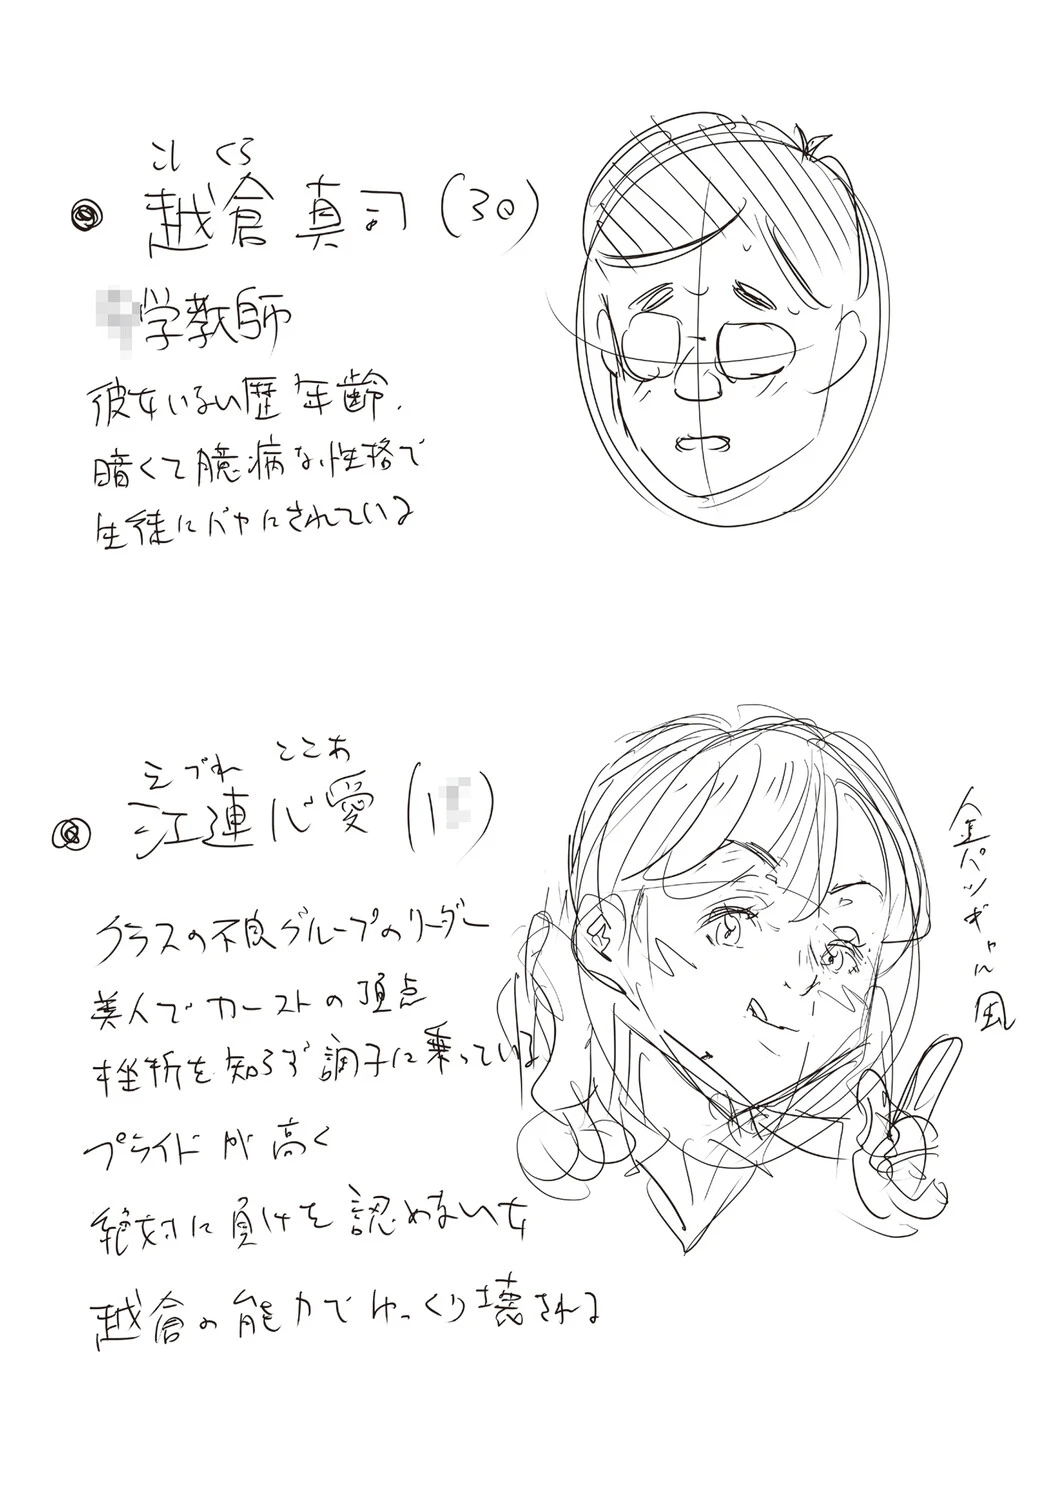 こし くら
越倉 真司 (30)
学教師
彼女いない歴 年齢.
暗くて臆病な性格で
生徒にバカにされている
えづれ ここあ
江連 心愛 (1
金パツギャル風
クラスの不良グループのリーダー
美人でカーストの頂点
挫折を知らず調子に乗っている
プライドが高く
絶対に負けを認めない女
越倉の能力でゆっくり壊される